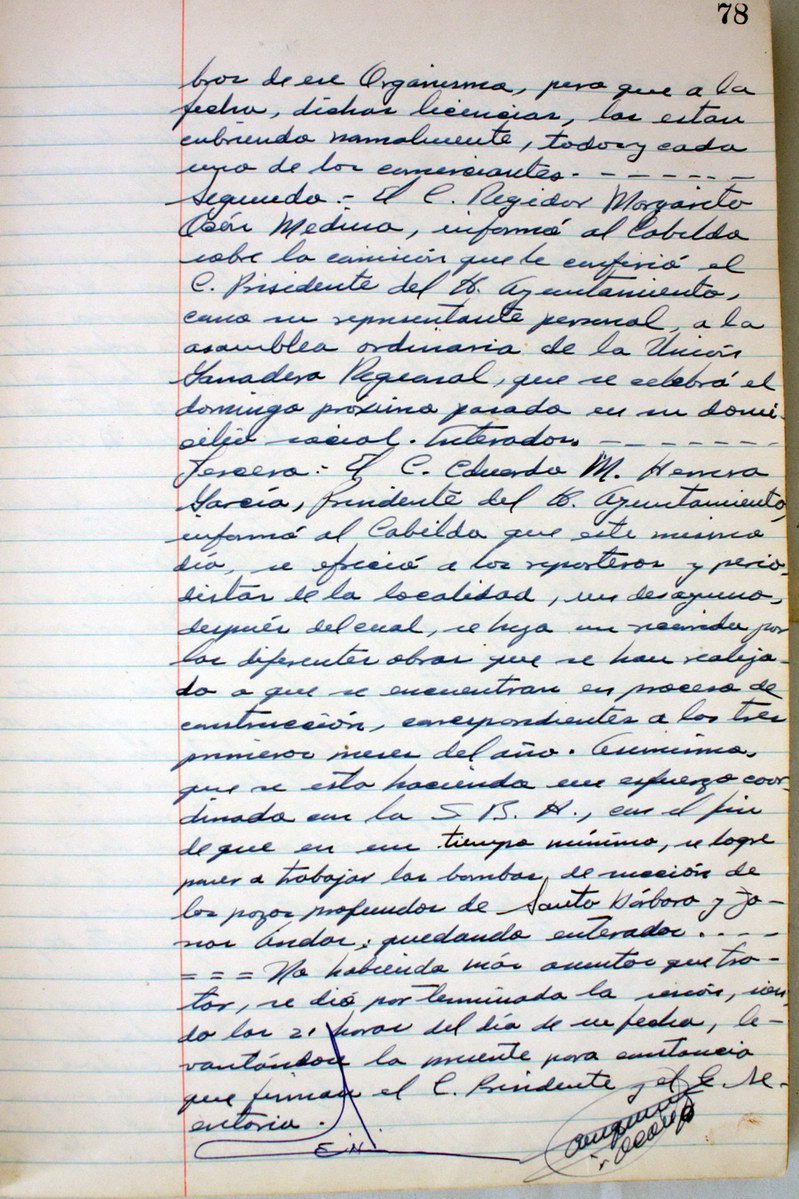 78
bros de ese Organismo, pero que a la
fecha, dichas licencias, las estan
cubriendo normalmente, todos y cada
uno de los comerciantes. - - - - - -
Segundo.- El C. Regidor Margarito
Medina, informó al Cabildo
sobre la comisión que le confirió el
C. Presidente del H. Ayuntamiento,
como su representante personal, a la
asamblea ordinaria de la Unión
Ganadera Regional, que se celebró el
domingo próximo pasado en su domi-
cilio social. Enterados. - - - - - -
Tercero.- El C. Eduardo M. Herrera
García, Presidente del H. Ayuntamiento,
informó al Cabildo que este mismo
día, se ofreció a los reporteros y perio-
distas de la localidad, un desayuno,
después del cual, se hizo un recorrido por
las diferentes obras que se han realiza-
do o que se encuentran en proceso de
construcción, correspondientes a los tres
primeros meses del año. Asimismo,
que se esta haciendo un esfuerzo coor-
dinado con la S B. H., con el fin
de que en un tiempo mínimo, se logre
poner a trabajar las bombas de succión de
los pozos profundos de Santa Bárbara y
quedando enterados. - - - -
= = = No habiendo más asuntos que tra-
tar, se dió por terminada la sesión, sien-
do las 21 horas del día de su fecha, le-
vantándose la presente para constancia
que firman el C. Presidente y el C. Se-
cretario.